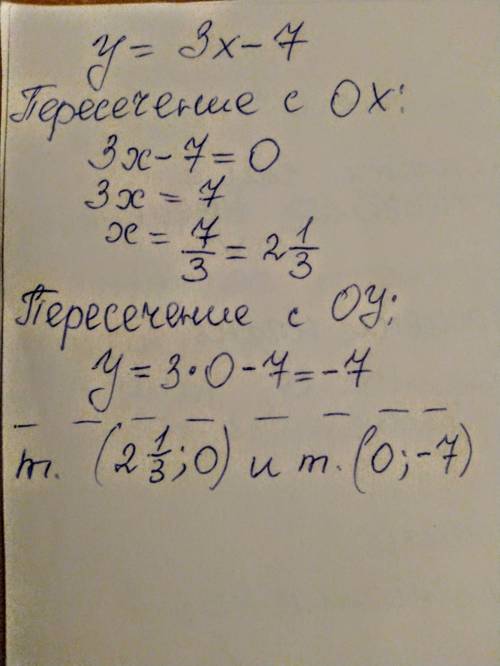 y = 3x - 7
Пересечение с OX:
3x - 7 = 0
3x = 7
x = 7/3 = 2 1/3
Пересечение с OY:
y = 3·0 - 7 = -7
т. (2 1/3; 0) и т. (0; -7)